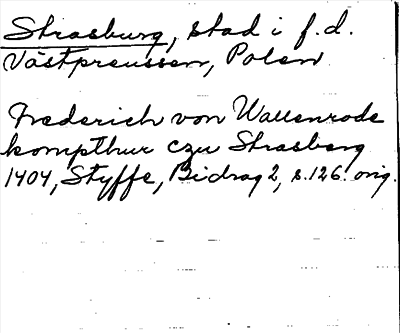 Strasburg, stad i f.d.
Västpreussen, Polen
Frederich von Wallenrode
kompthur czu Strasberg
1404, Styffe, Bidrag 2, s.126. orig.